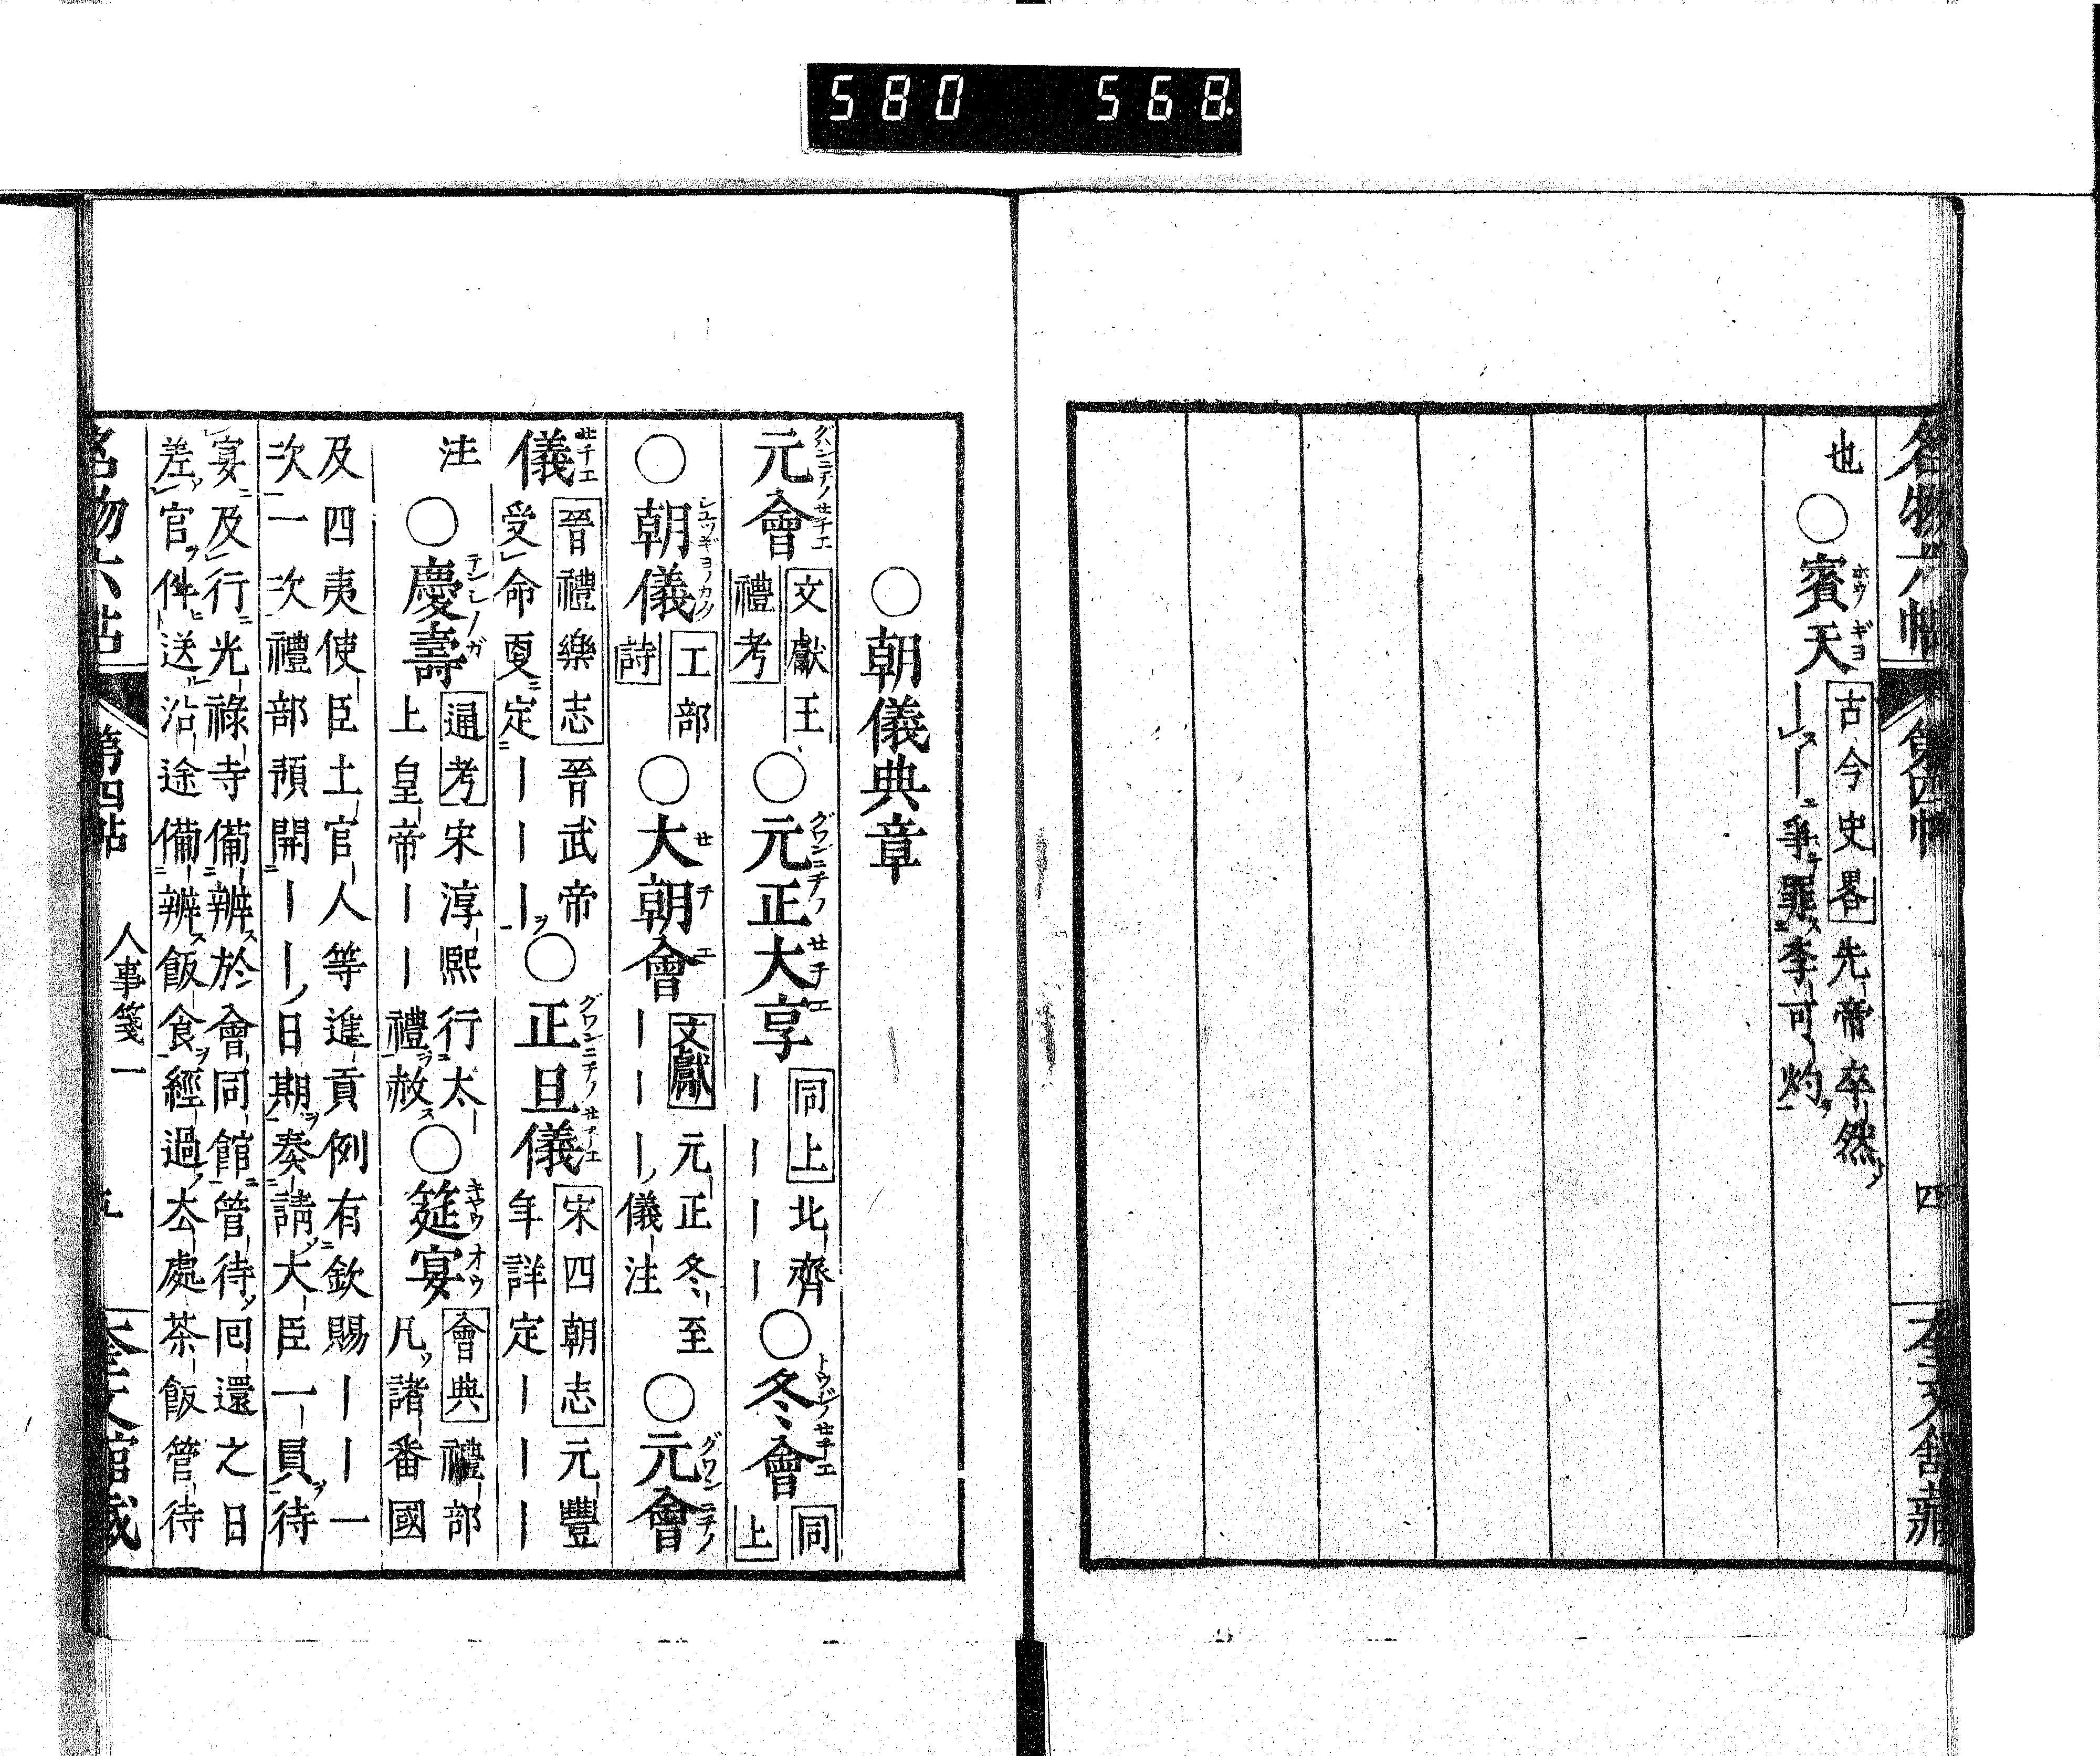 580 568
名物六帖 第四帖 四 奎文館藏
也○賓天 ホウギヨ 古今史畧 先帝卒然
｜｜爭罪李可灼
○朝儀典章
元會 グハンニチノセチエ 文獻王禮考 ○元正大享 グワンニチノセチエ 同上 北齊｜｜｜｜ ○冬會 トウジノセチエ 同上
○朝儀 シユツギヨノカク 工部詩 ○大朝會 セチエ 文獻 元正冬至｜｜｜儀注 ○元會 グワンニチノ
儀 セチエ 晉禮樂志 晉武帝受命更定｜｜｜ ○正旦儀 グワンニチノセチエ 宋四朝志 元豐年詳定｜｜｜
注 ○慶壽 テンシノガ 通考 宋淳熙行太上皇帝｜｜禮赦 ○筵宴 キヤウオウ 會典 禮部凡諸番國
及四夷使臣土官人等進貢例有欽賜｜｜一
次二次禮部預開｜｜日期奏請大臣一員待
宴及行光祿寺備辦於會同館管待回還之日
差官伴送沿途備辦飯食經過去處茶飯管待
名物六帖 第四帖 人事箋一 五 奎文館藏